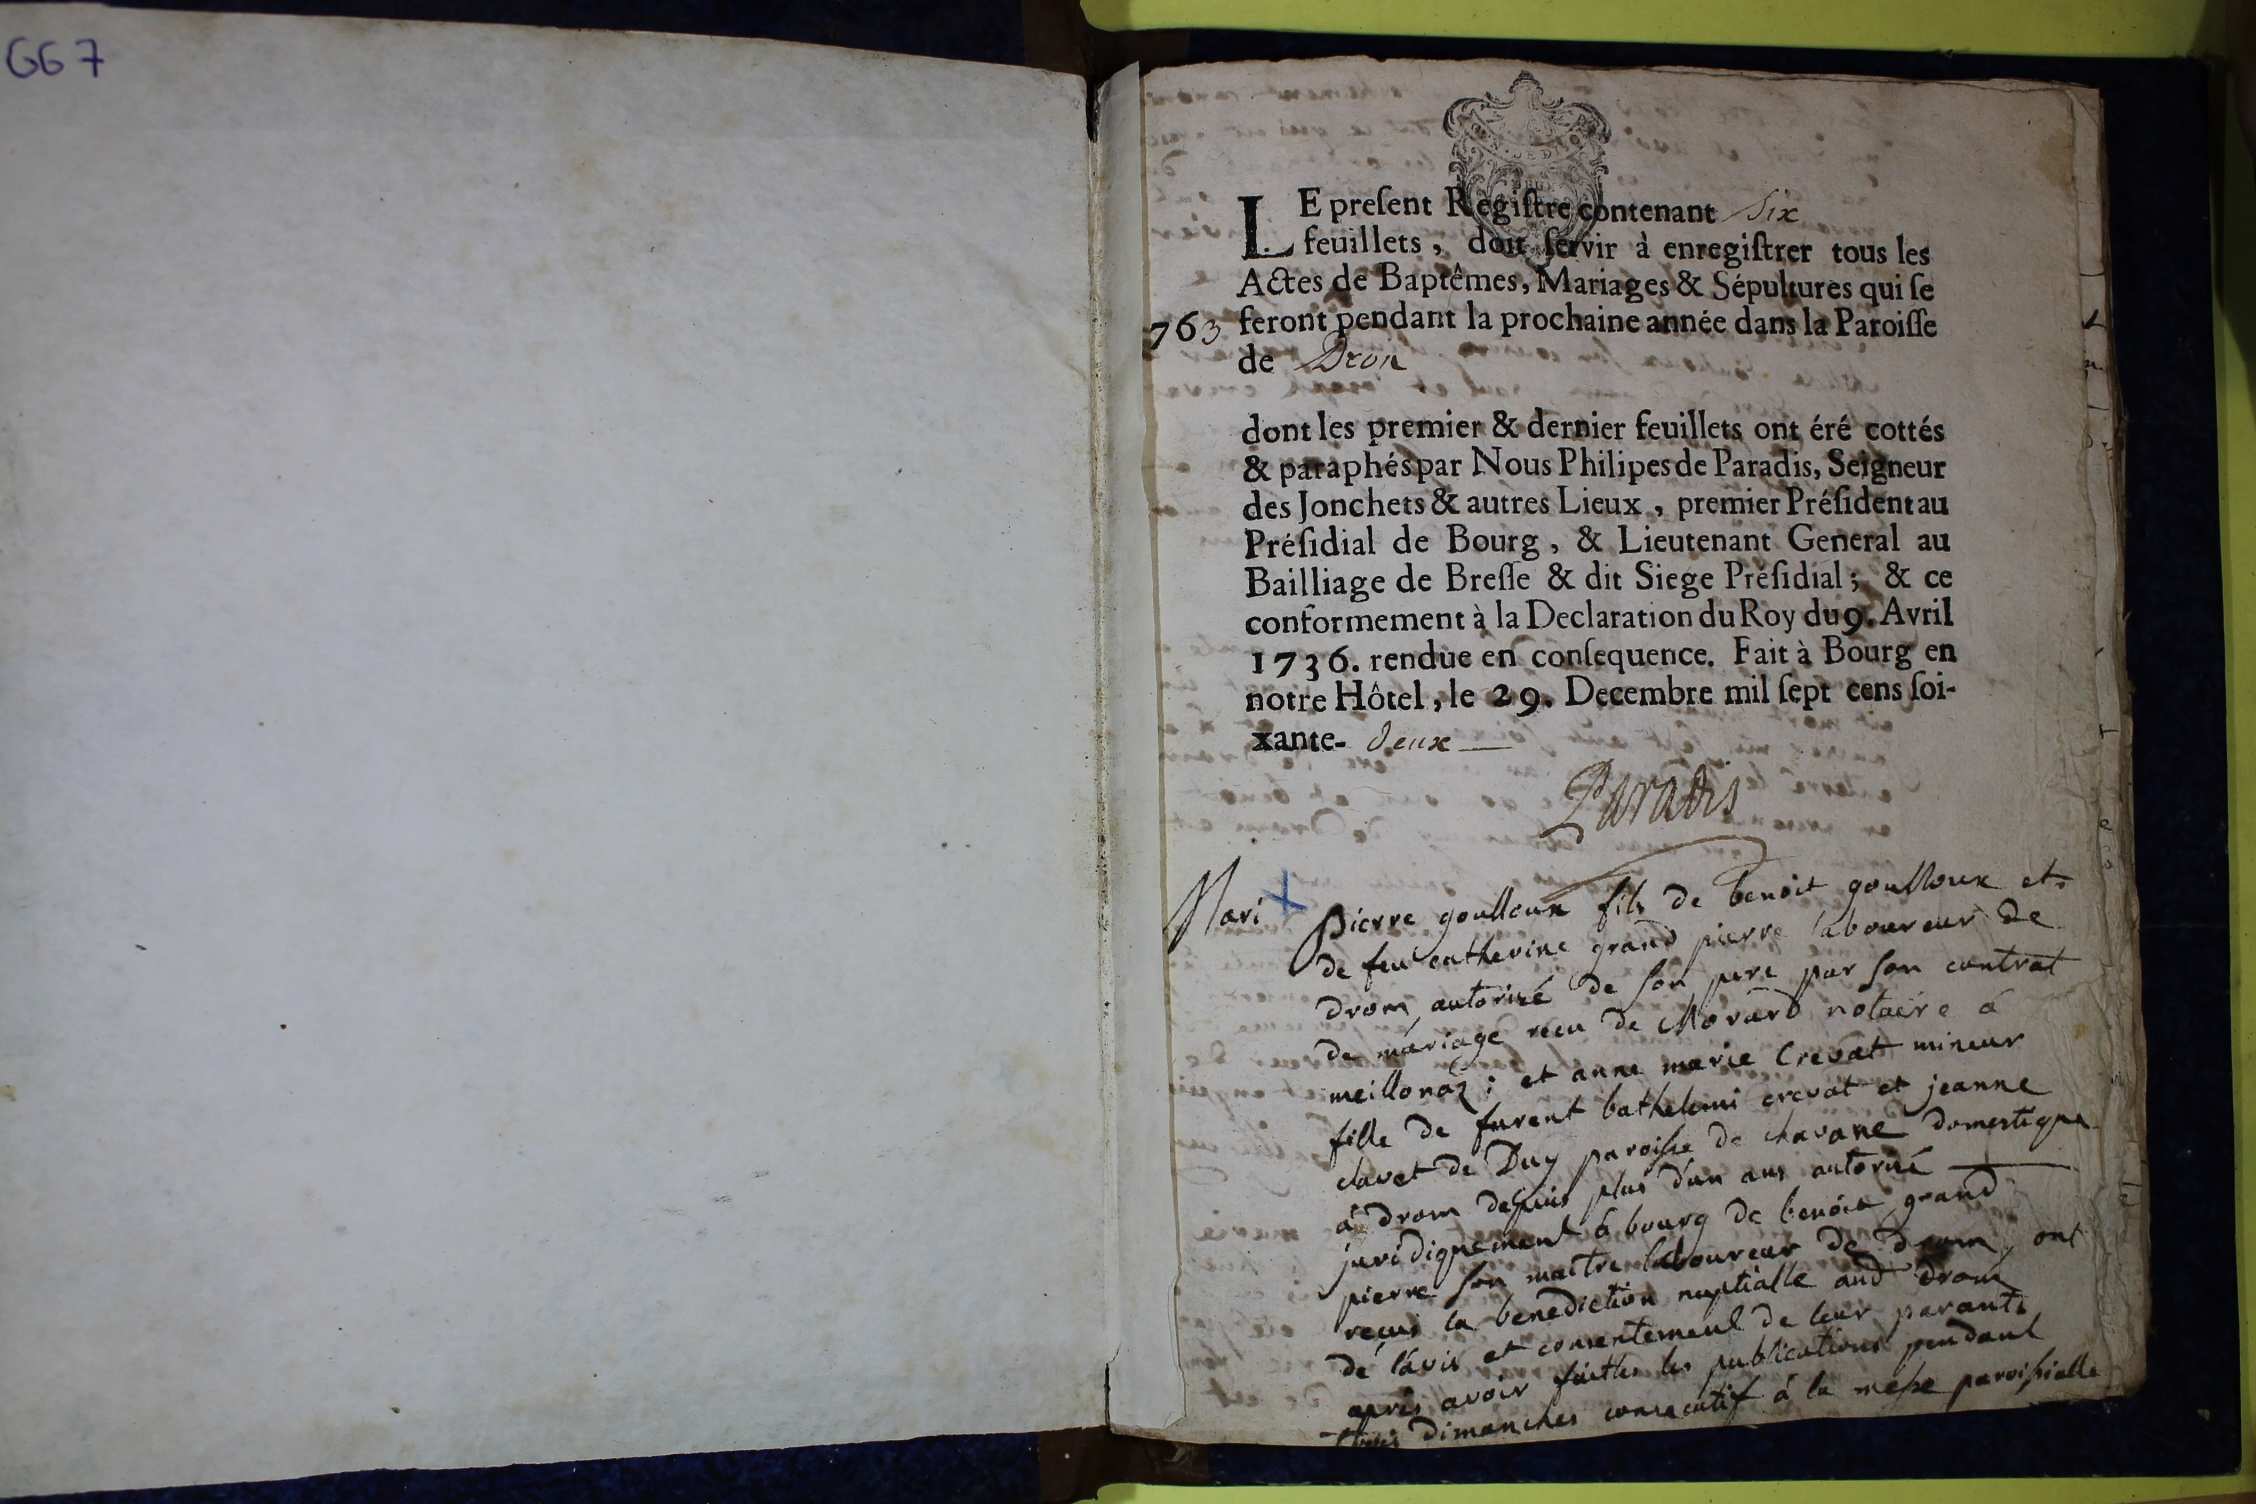 GG 7
LE preſent Regiſtre contenant Six
feuillets, doit ſervir à enregiſtrer tous les
Actes de Baptêmes, Mariages & Sépultures qui ſe
763 feront pendant la prochaine année dans la Paroiſſe
de Dron
dont les premier & dernier feuillets ont éré cottés
& paraphés par Nous Philipes de Paradis, Seigneur
des Jonchets & autres Lieux, premier Préſident au
Préſidial de Bourg, & Lieutenant General au
Bailliage de Breſſe & dit Siege Préſidial; & ce
conformement à la Declaration du Roy du 9. Avril
1736. rendue en conſequence. Fait à Bourg en
notre Hôtel, le 29. Decembre mil ſept cens ſoi-
xante- deux
Paradis
Mari pierre goulloux fils de benoit goulloux et
de feu catherine grand pierre laboureur de
drom, autorisé de son pere par son contrat
de mariage reçu de Morard notaire á
meillonaz; et anne marie Crevat mineur
fille de furent bathelemi crevat et jeanne
clavet de Duy paroisse de chavane domestique
á drom depuis plus d'un ans autorisé
juridiquement á bourg de benoit grand
pierre son maitre laboureur de drom, ont
reçus la benediction nuptialle aud drom
de l'avis et consentement de leur parants
aprés avoir faittes les publications pendant
trois dimanches consecutif á la messe paroissialle